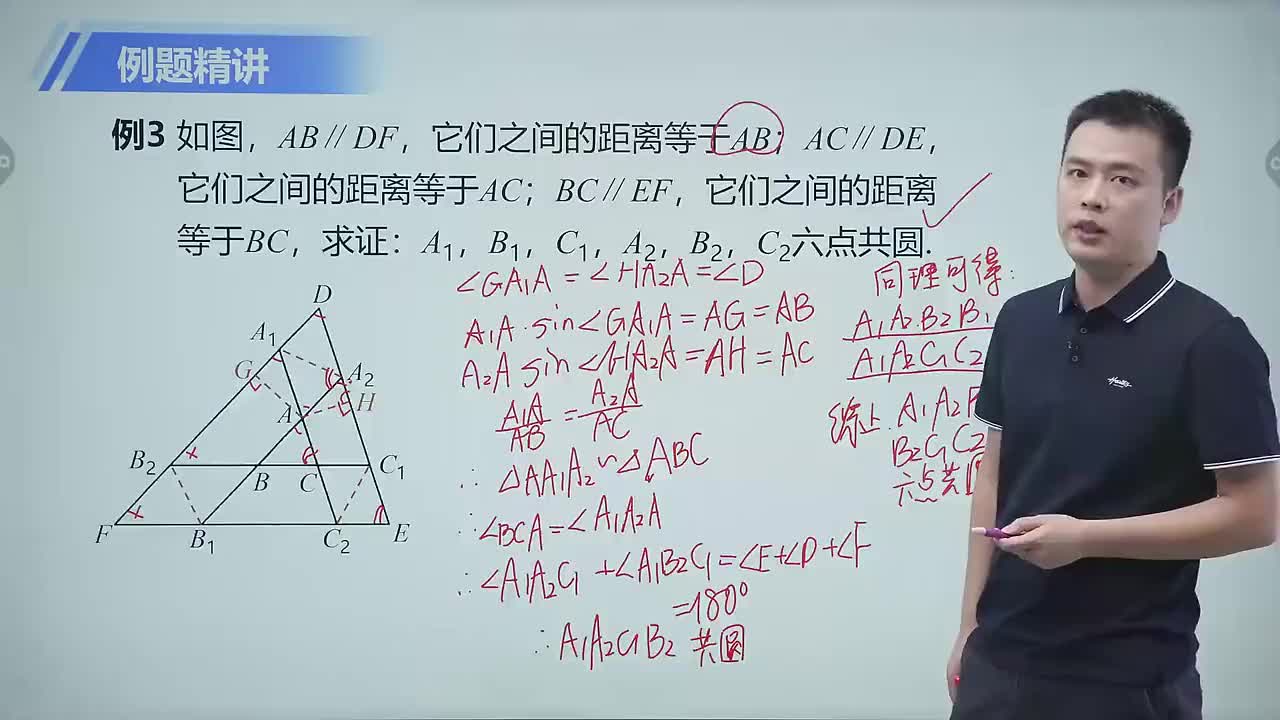 例题精讲
例3 如图，AB∥DF，它们之间的距离等于AB；AC∥DE，
它们之间的距离等于AC；BC∥EF，它们之间的距离
等于BC，求证：A₁，B₁，C₁，A₂，B₂，C₂六点共圆.
∠GA₁A=∠HA₂A=∠D
A₁A·sin∠GA₁A=AG=AB
A₂A sin∠HA₂A=AH=AC
A₁A/AB=A₂A/AC
∴△AA₁A₂∽△ABC
∴∠BCA=∠A₁A₂A
∴∠A₁A₂C₁+∠A₁B₂C₁=∠E+∠D+∠F
=180°
∴A₁A₂C₁B₂共圆
同理可得:
A₁A₂B₂B₁
A₁A₂C₁C₂
综上. A₁A₂
B₂C₁C₂
六点共圆
D
A₁
G
A₂
H
A
B₂
B
C
C₁
F
B₁
C₂
E